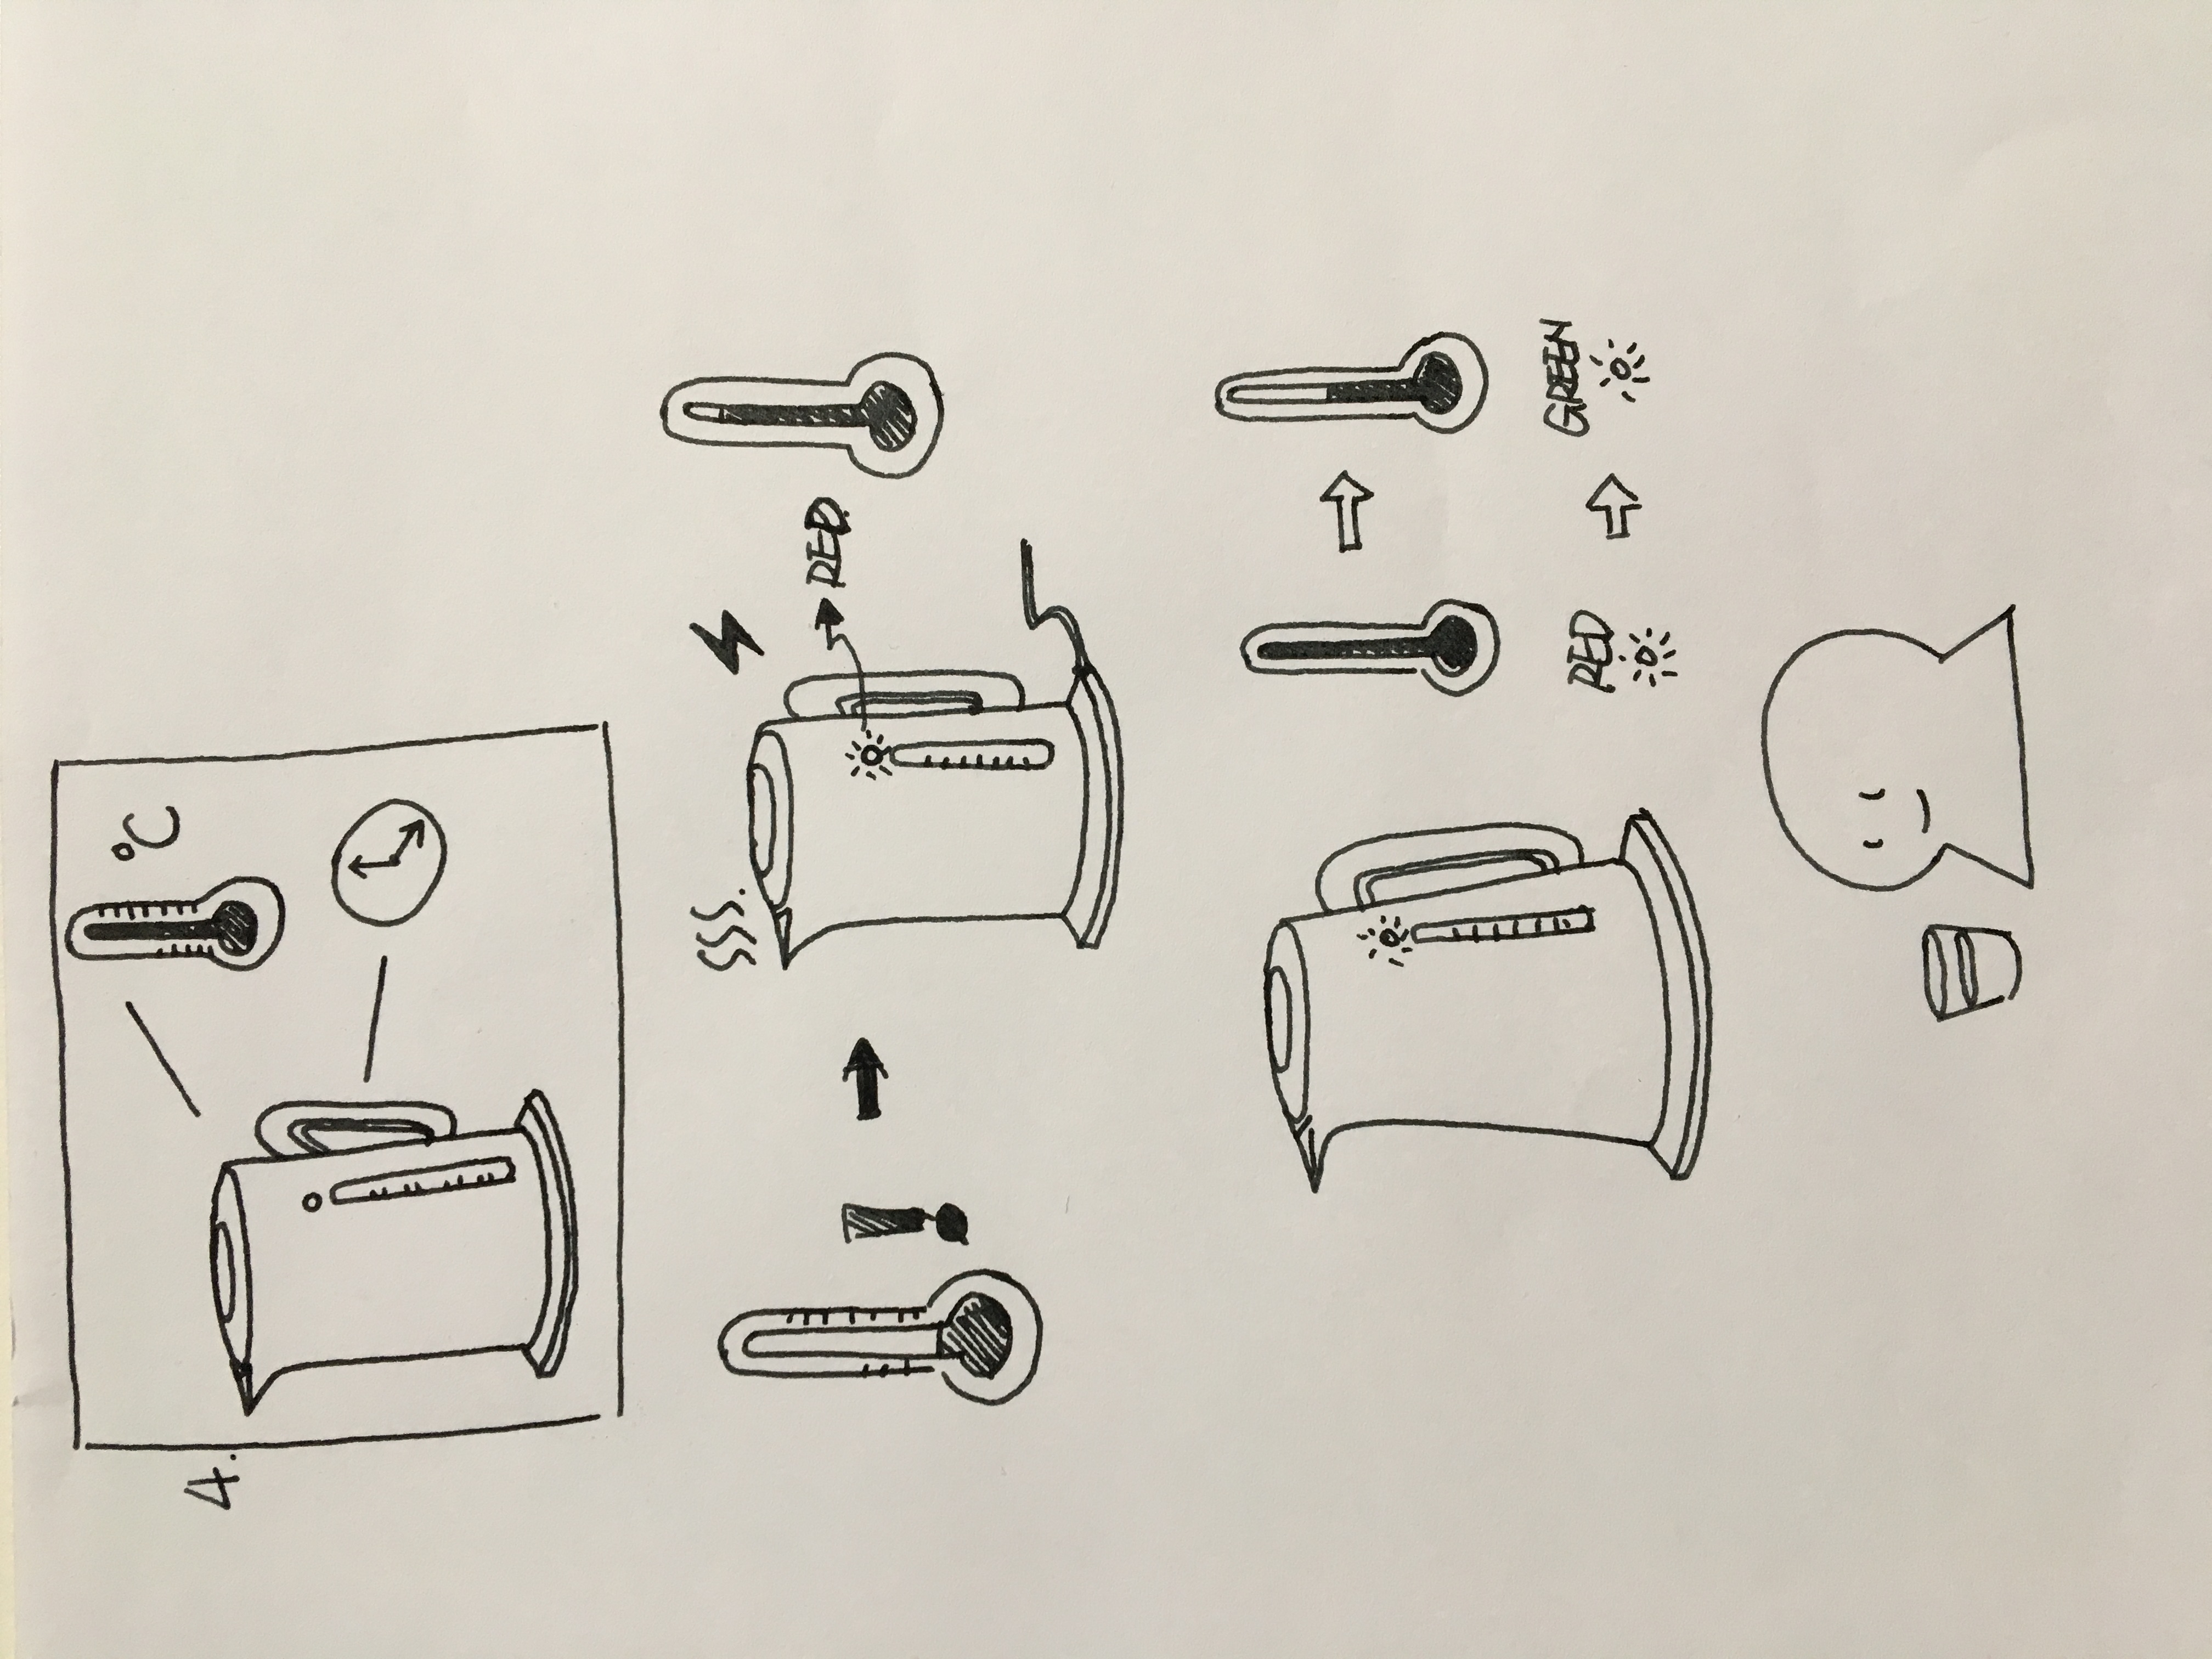 4.
°C
RED
RED
GREEN